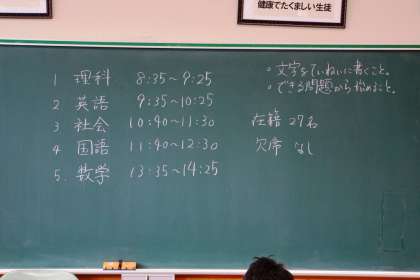 健康でたくましい生徒
1 理科 8:35~9:25
2 英語 9:35~10:25
3 社会 10:40~11:30
4 国語 11:40~12:30
5. 数学 13:35~14:25
・文字をていねいに書くこと。
・できる問題から始めること。
在籍 27名
欠席 なし